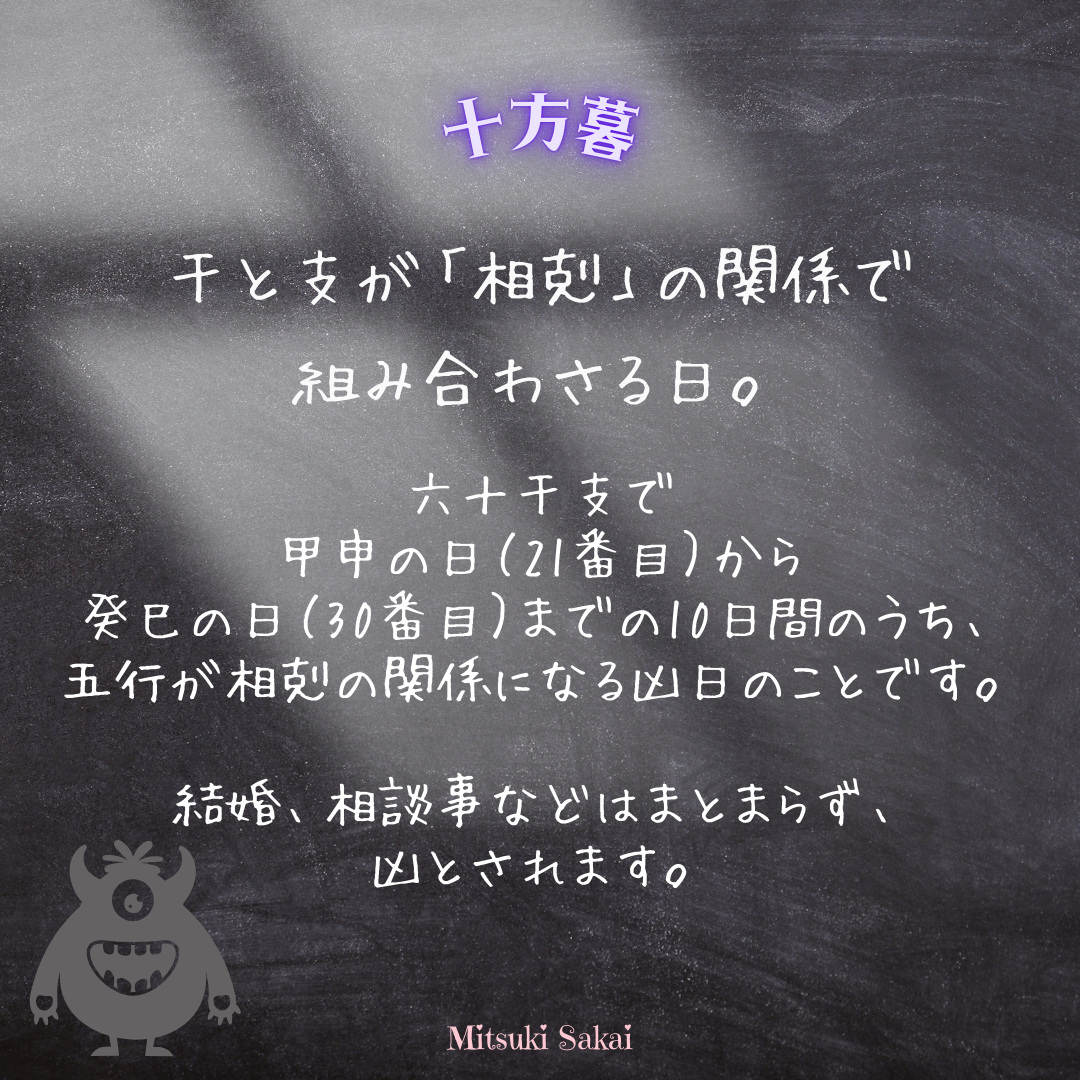 十方暮
干と支が「相剋」の関係で
組み合わさる日。
六十干支で
甲申の日(21番目)から
癸巳の日(30番目)までの10日間のうち、
五行が相剋の関係になる凶日のことです。
結婚、相談事などはまとまらず、
凶とされます。
Mitsuki Sakai